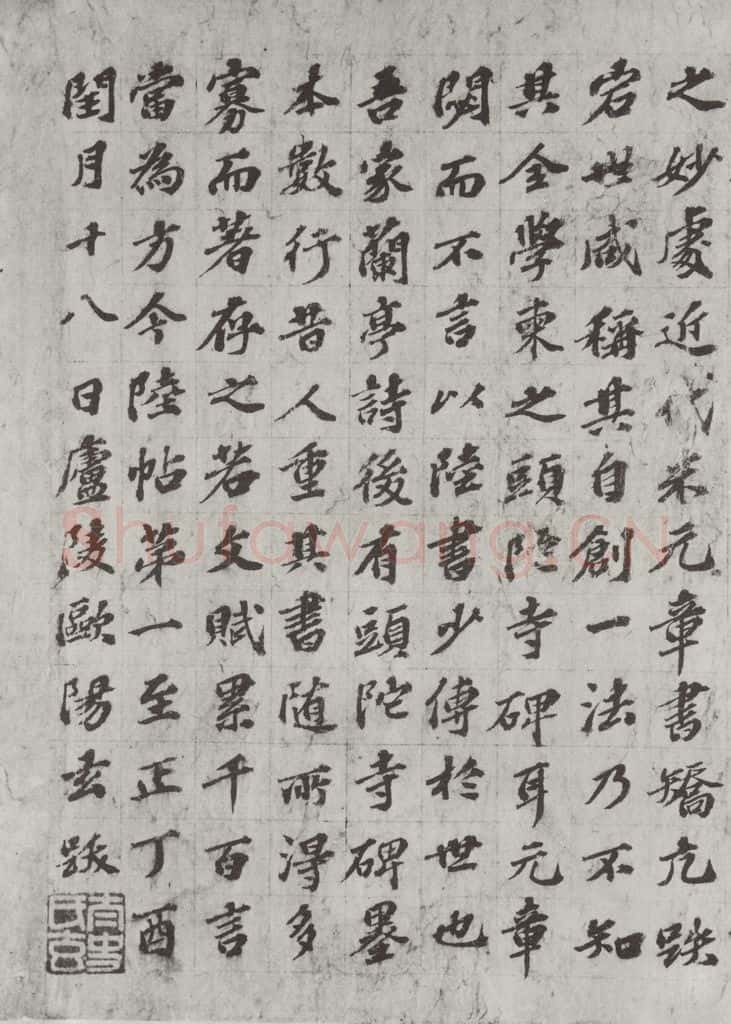 之妙處近代米元章書矯亢跌
宕世咸稱其自創一法乃不知
其全學柬之頭陁寺碑耳元章
閟而不言以陸書少傳於世也
吾家蘭亭詩後有頭陀寺碑墨
本數行昔人重其書随所得多
寡而著存之若文賦累千百言
當為方今陸帖第一至正丁酉
閏月十八日廬陵歐陽玄跋
Shufawang.CN